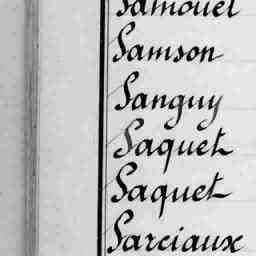 Samouel
Samson
Sanguy
Saquet
Saquet
Sarciaux